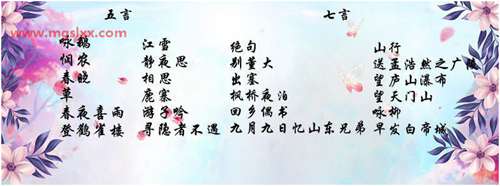 五言 七言
www.mgslxx.com
咏鹅 江雪 绝句 山行
悯农 静夜思 别董大 送孟浩然之广陵
春晓 相思 出塞 望庐山瀑布
草 鹿寨 枫桥夜泊 望天门山
春夜喜雨 游子吟 回乡偶书 咏柳
登鹳雀楼 寻隐者不遇 九月九日忆山东兄弟 早发白帝城